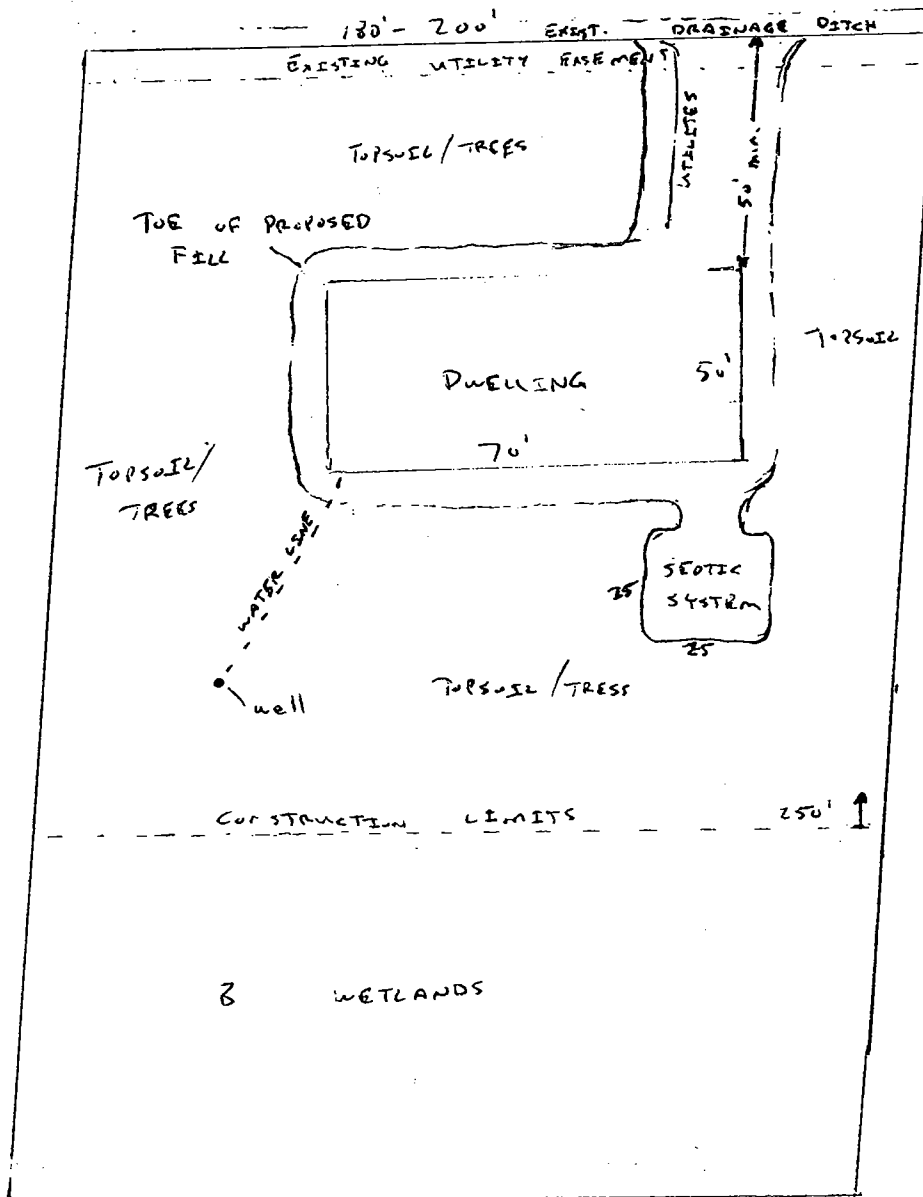 180' - 200' EXIST. DRAINAGE DITCH
EXISTING UTILITY EASEMENT
UTILITES
50' MIN.
TOPSOIL / TREES
TOE OF PROPOSED
FILL
TOPSOIL
DWELLING
50'
70'
TOPSOIL/
TREES
WATER LINE
SEPTIC
SYSTEM
25
well
TOPSOIL / TRESS
CONSTRUCTION LIMITS
250'
WETLANDS